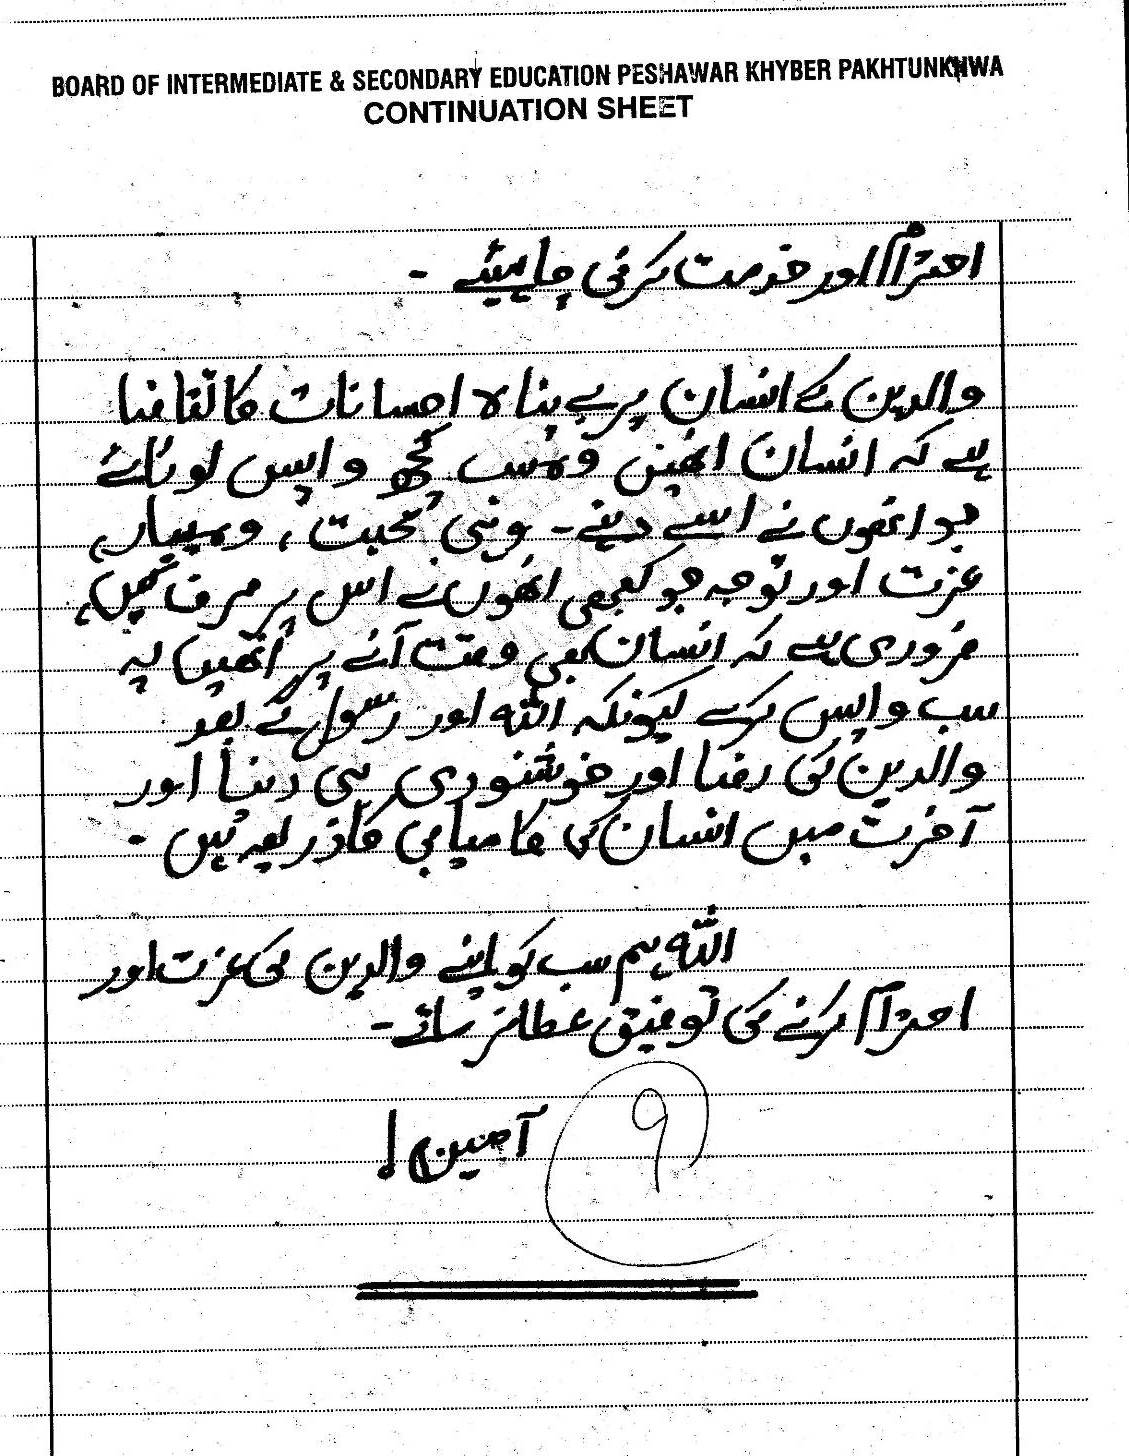 BOARD OF INTERMEDIATE & SECONDARY EDUCATION PESHAWAR KHYBER PAKHTUNKHWA
CONTINUATION SHEET
احترام اور خدمت کرنی چاہیئے ۔
والدین کے انسان پر بے پناہ احسانات کا تقاضا
ہے کہ انسان انھیں وہ سب کچھ واپس لوٹائے
جو انھوں نے اسے دیئے۔ وہی محبت ، وہ پیار،
عزت اور توجہ جو کبھی انھوں نے اس پر صرف کیں،
ضروری ہے کہ انسان بھی وقت آنے پر انھیں یہ
سب واپس کرے کیونکہ اللہ اور رسول کے بعد
والدین کی رضا اور خوشنودی ہی دنیا اور
آخرت میں انسان کی کامیابی کا ذریعہ ہیں ۔
اللہ ہم سب کو اپنے والدین کی عزت اور
احترام کرنے کی توفیق عطا فرمائے۔
آمین !
9